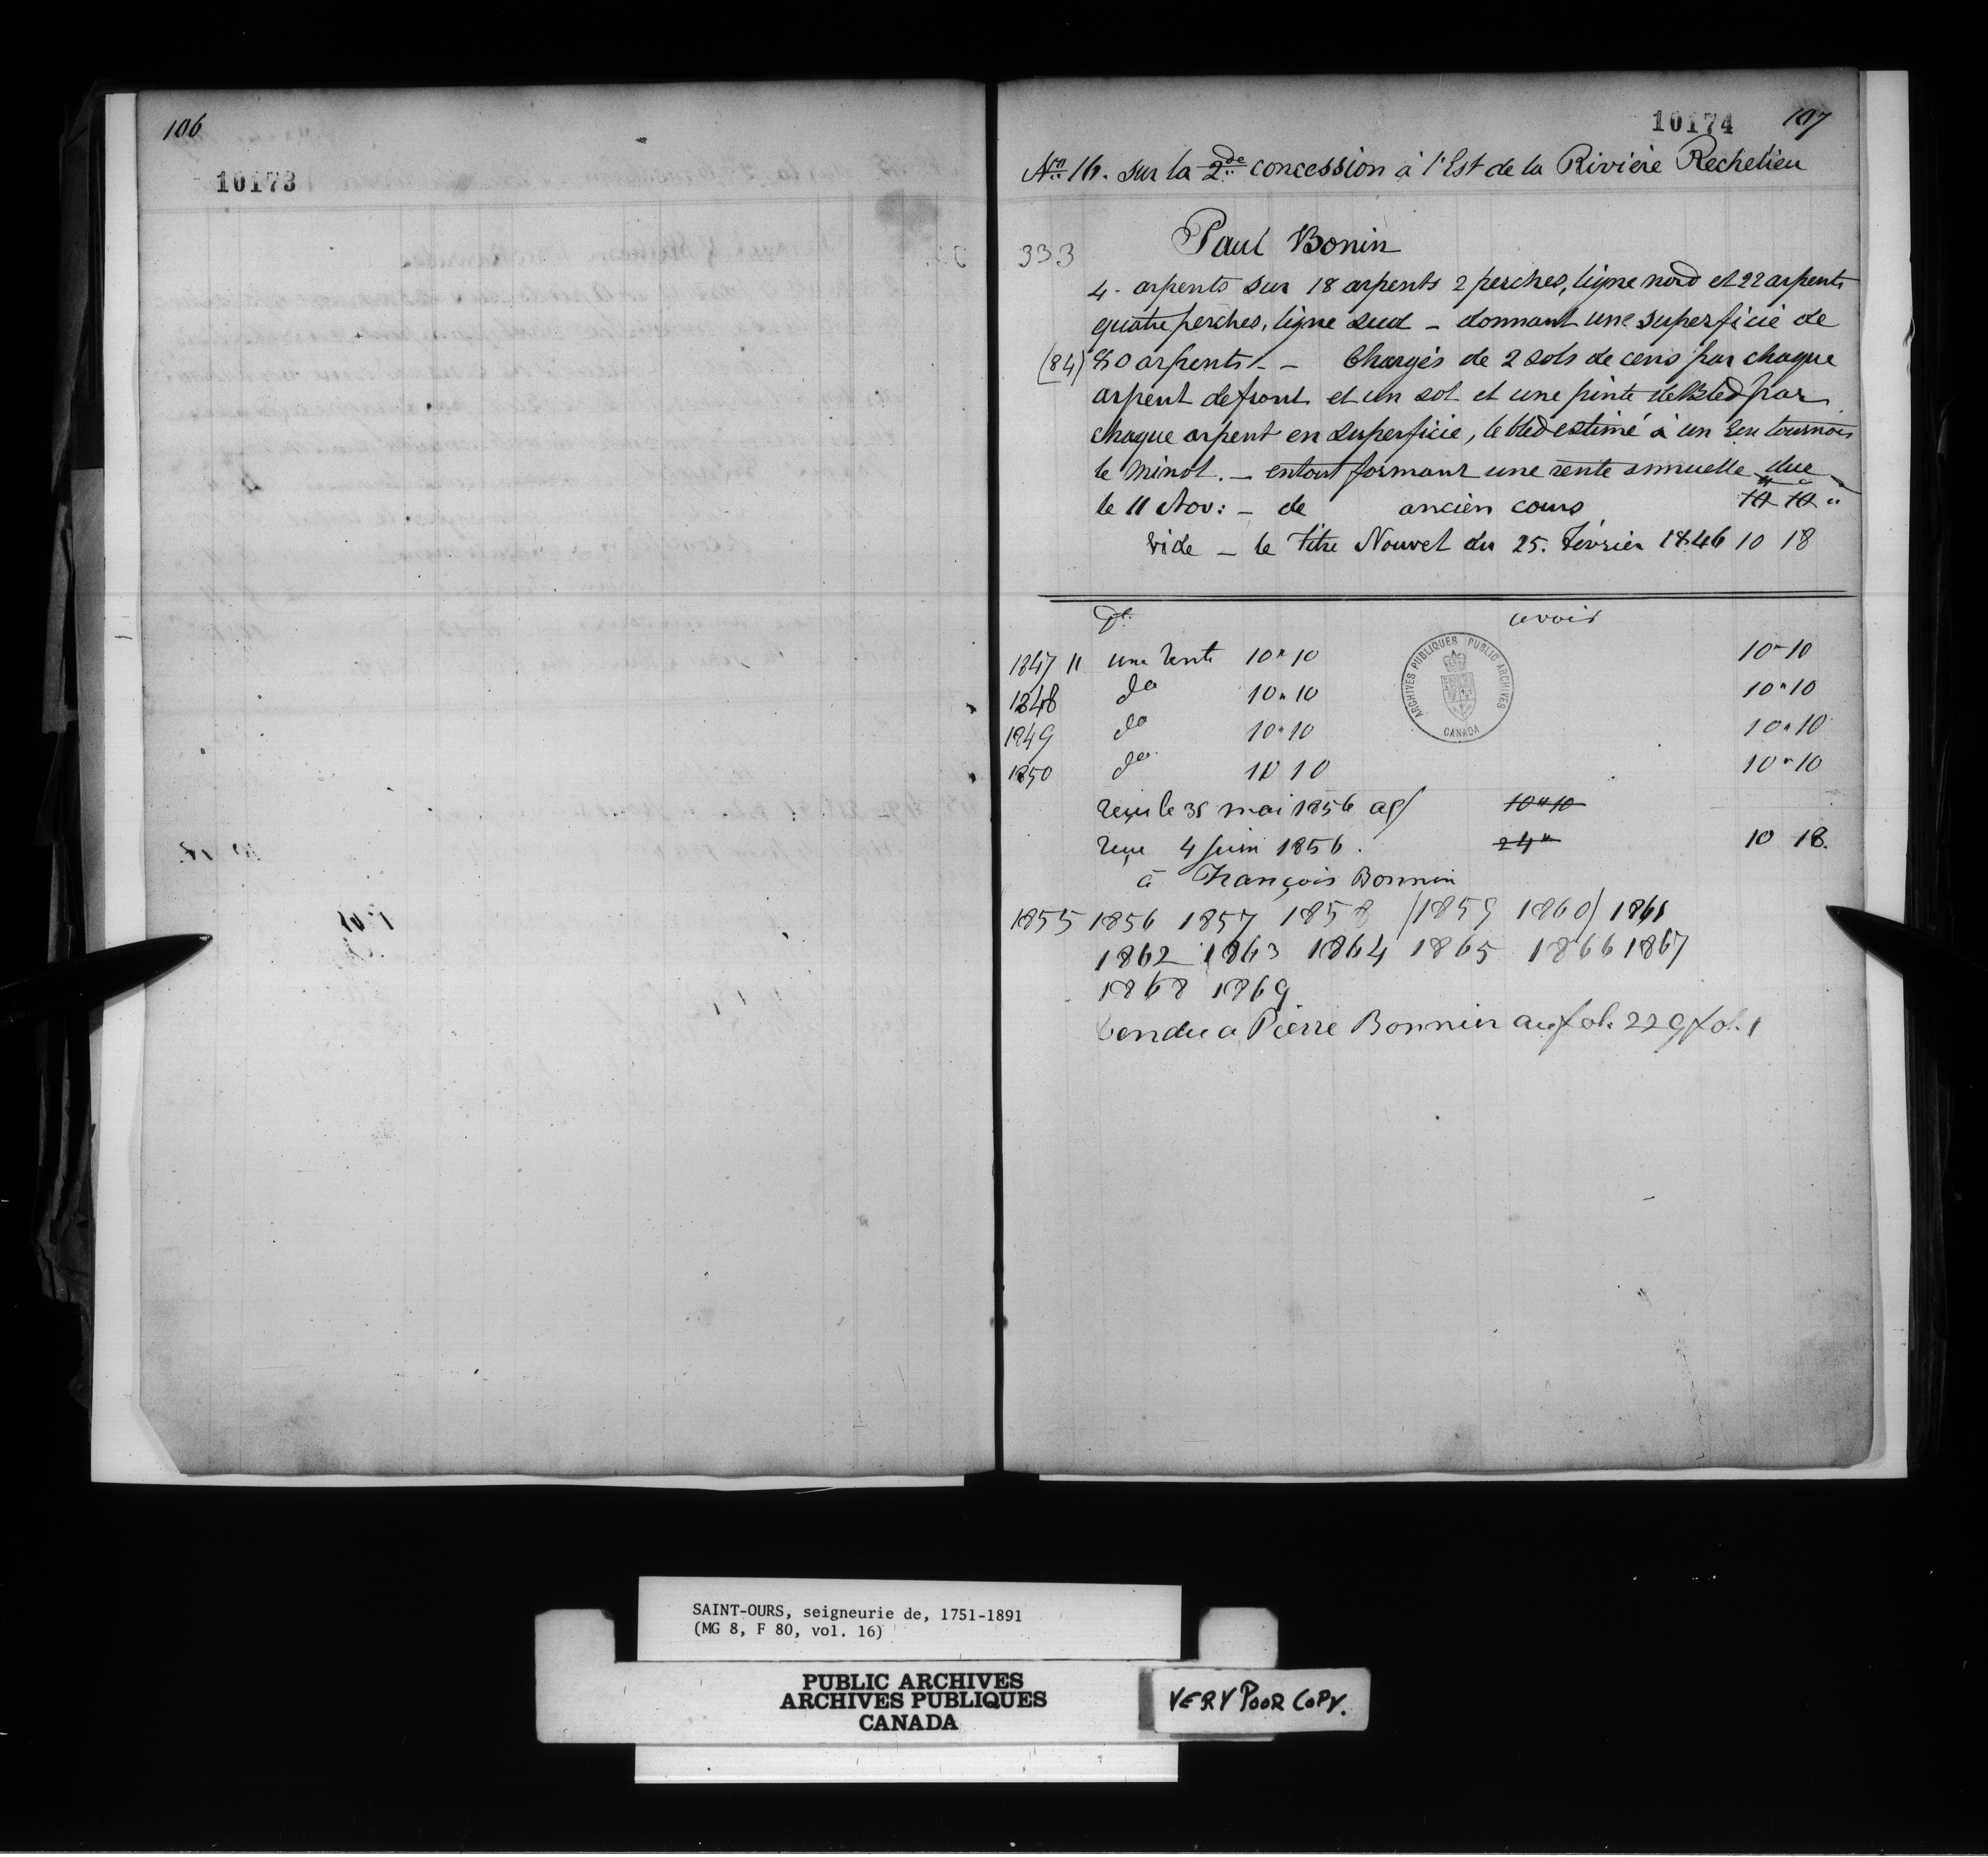 106
10173
10174 107
No 16. sur la 2de concession à l'Est de la Rivière Rechelieu
333 Paul Bonin
4. arpents sur 18 arpents 2 perches, ligne nord et 22 arpents
quatre perches, ligne sud - donnant une superficie de
(84) 80 arpents. - Chargés de 2 sols de cens par chaque
arpent de front et un sol et une pinte de bled par
chaque arpent en superficie, le bled estimé à un Ecu tournois
le minot. - entout formant une rente annuelle due
le 11 Nov: - de ancien cours 10 10 "
vide - le titre Nouvel du 25. Février 1846 10 18
Dt avoir
1847 11 une rente 10 " 10 10 " 10
1848 do 10 " 10 10 " 10
1849 do 10 " 10 10 " 10
1850 do 10 10 10 " 10
reçu le 31 mai 1856 10 " 10
reçu 4 juin 1856. 24 " 10 18.
à François Bonnin
1855 1856 1857 1858 (1859 1860) 1861
1862 1863 1864 1865 1866 1867
1868 1869
Vendu a Pierre Bonnin au fol. 229 fol. 1
ARCHIVES PUBLIQUES PUBLIC ARCHIVES
CANADA
SAINT-OURS, seigneurie de, 1751-1891
(MG 8, F 80, vol. 16)
PUBLIC ARCHIVES
ARCHIVES PUBLIQUES
CANADA
VERY POOR COPY.